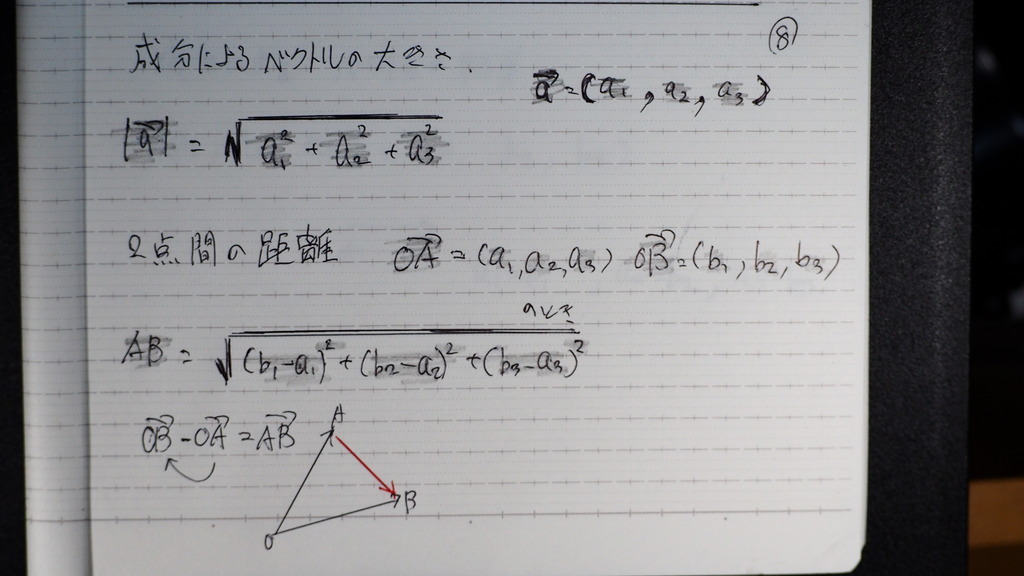 ⑧
成分によるベクトルの大きさ.
a⃗=(a₁, a₂, a₃)
|a⃗| = √(a₁² + a₂² + a₃²)
2点間の距離 OA⃗ = (a₁, a₂, a₃) OB⃗=(b₁, b₂, b₃)
のとき
AB = √((b₁-a₁)²+(b₂-a₂)²+(b₃-a₃)²)
OB⃗-OA⃗=AB⃗
A
B
O